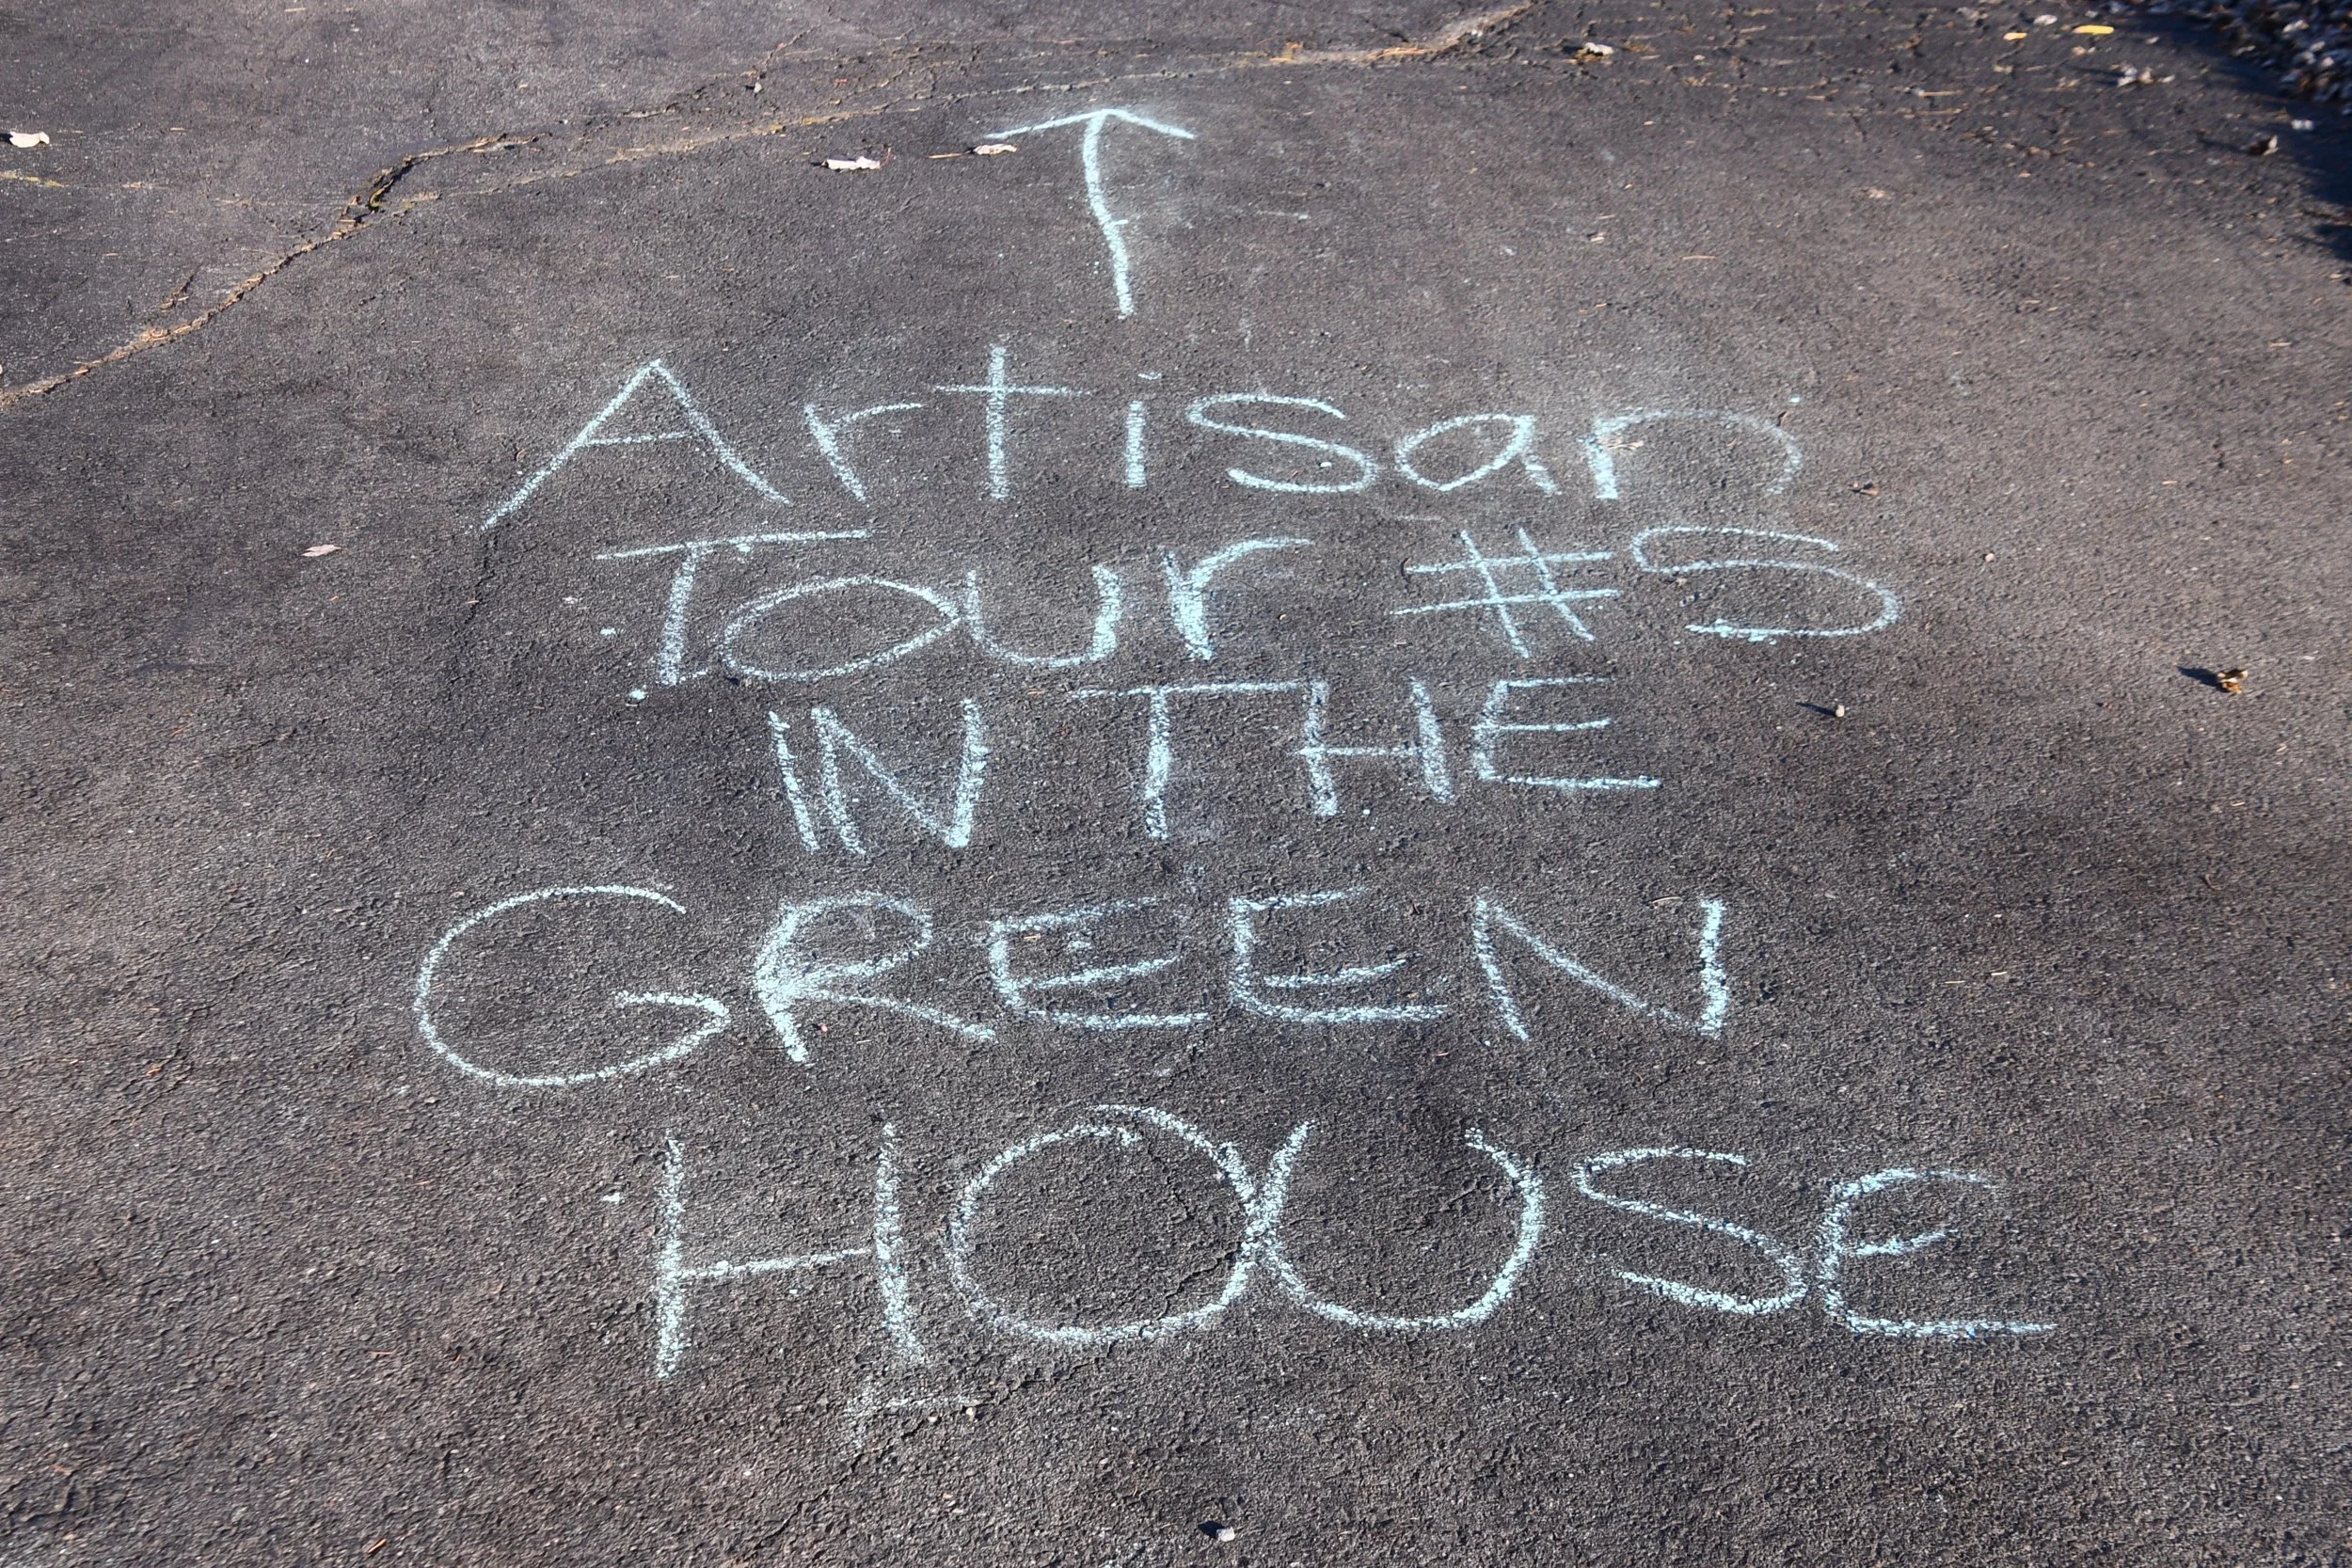 Artisan
Tour #5
IN THE
GREEN
HOUSE